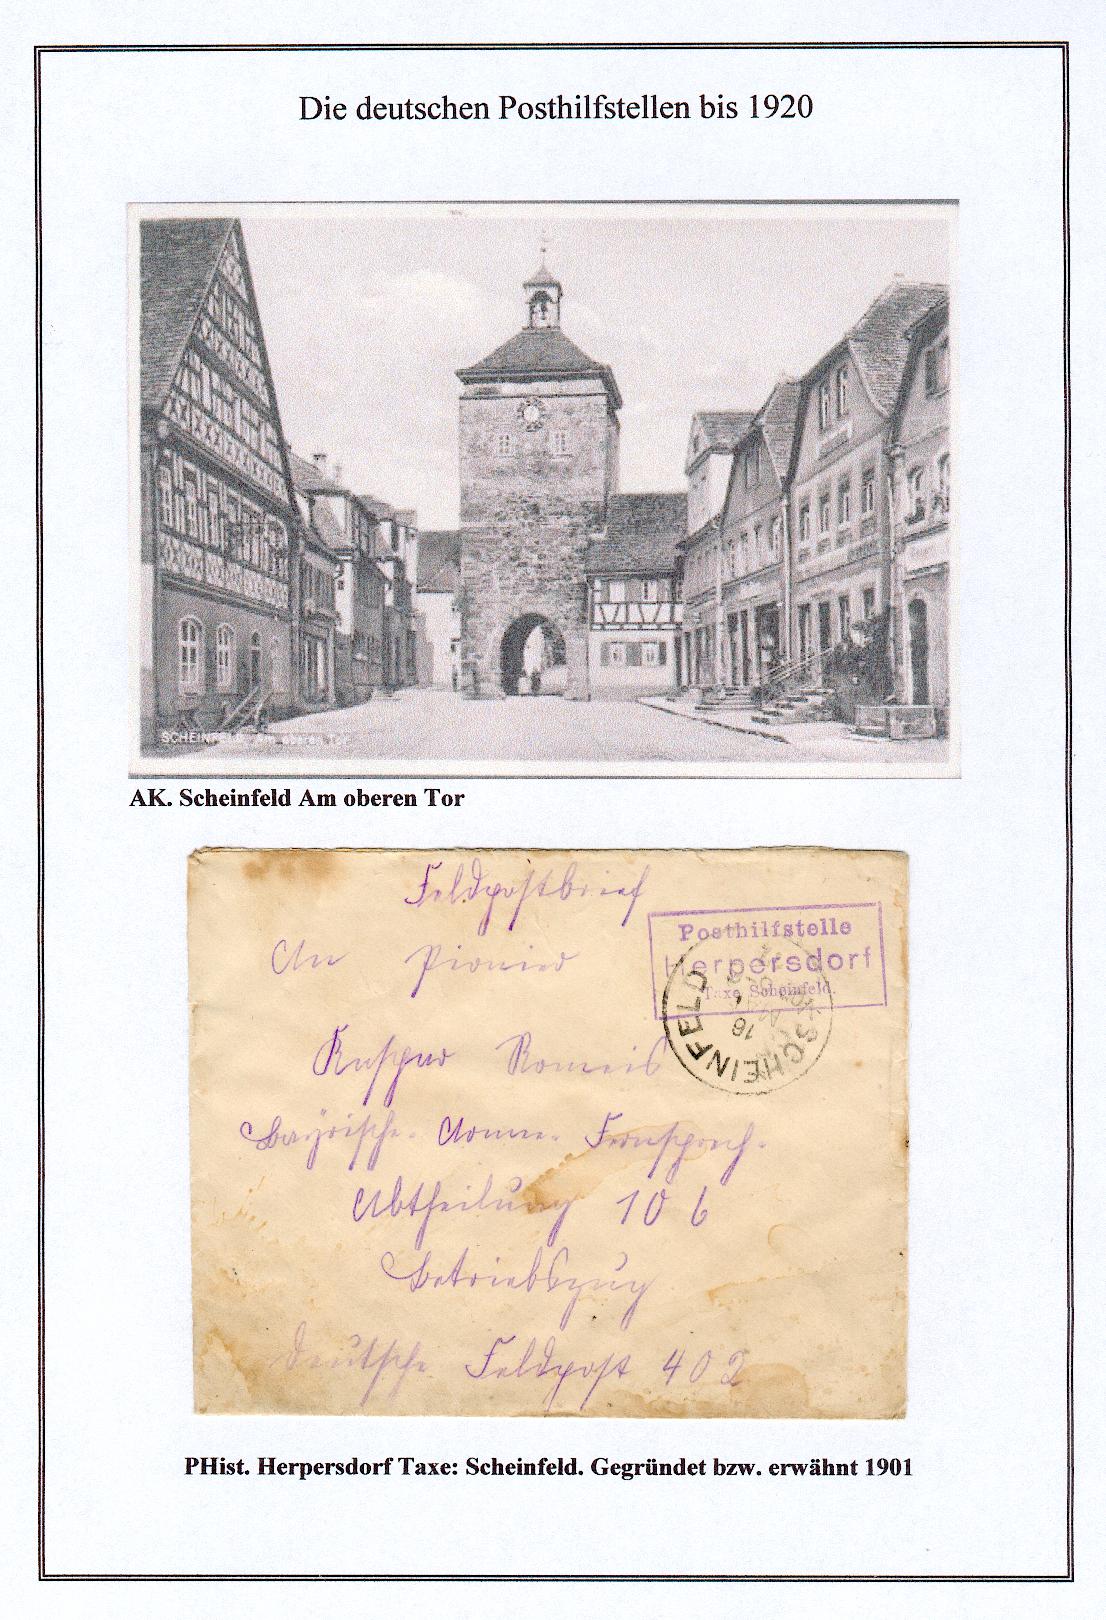 Die deutschen Posthilfstellen bis 1920
SCHEINFELD Am oberen Tor
AK. Scheinfeld Am oberen Tor
Feldpostbrief
Posthilfstelle
Herpersdorf
Taxe Scheinfeld.
SCHEINFELD
An Pionier
Romeis
Bayrische. Fernsprech.
Abtheilung 10 6
Betriebszug
Deutsche Feldpost 402
PHist. Herpersdorf Taxe: Scheinfeld. Gegründet bzw. erwähnt 1901